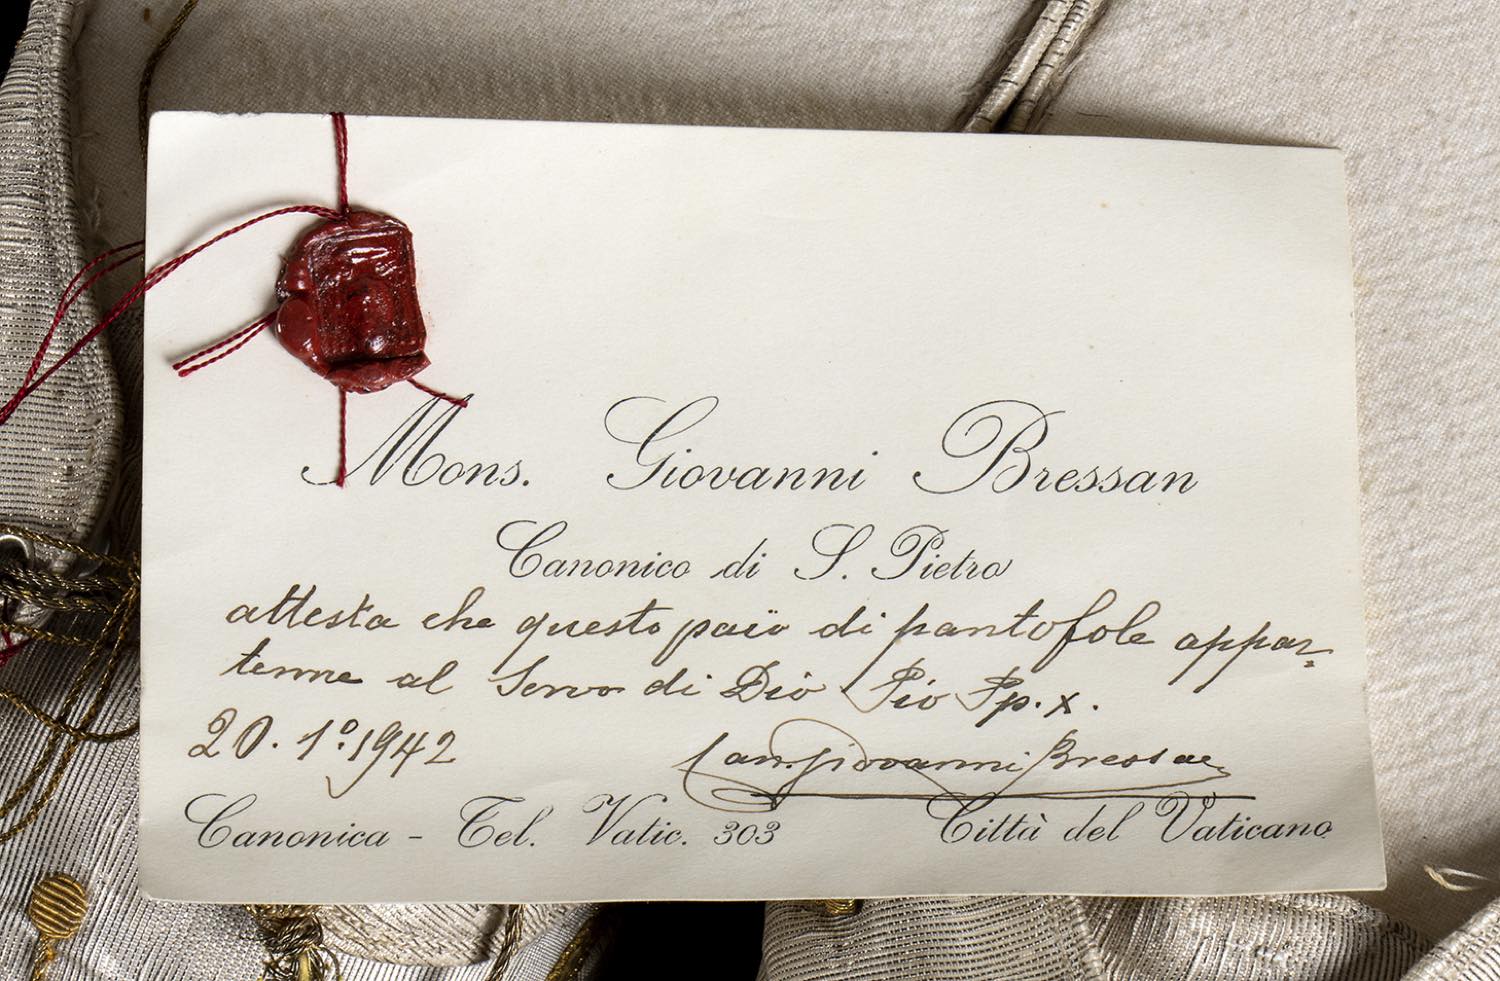 Mons. Giovanni Bressan
Canonico di S. Pietro
attesta che questo paio di pantofole appar-
tenne al Servo di Dio Pio Pp. X.
20. 1º 1942
Can. Giovanni Bressan
Canonica - Tel. Vatic. 303 Città del Vaticano